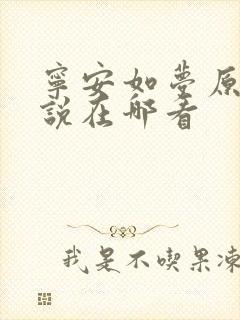 寧安如夢原
說在哪看
我是不喫果凍